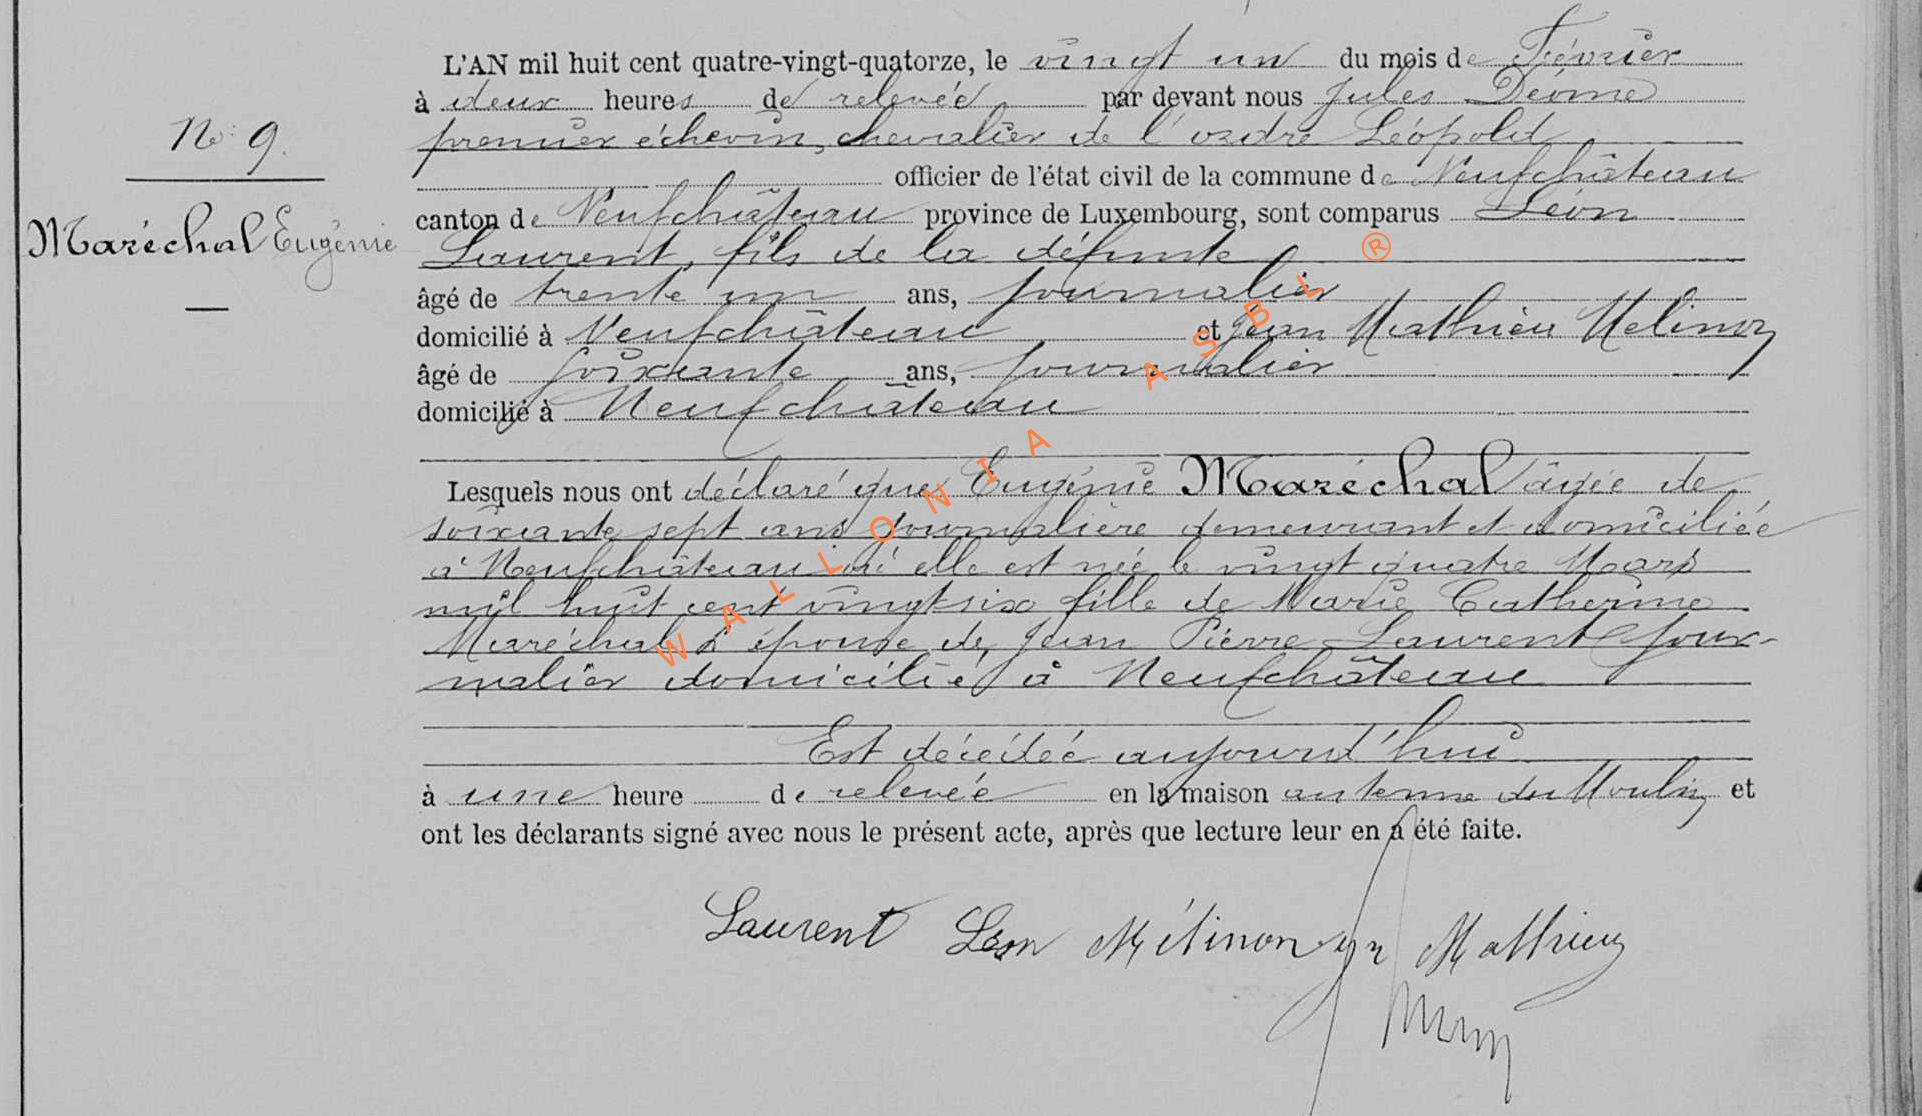 L'AN mil huit cent quatre-vingt-quatorze, le vingt un du mois de Février
à deux heures de relevée par devant nous Jules
premier échevin, chevalier de l'ordre Léopold
officier de l'état civil de la commune de Neufchâteau
canton de Neufchâteau province de Luxembourg, sont comparus Léon
Laurent, fils de la défunte
âgé de trente un ans, journalier
domicilié à Neufchâteau et Jean Mathieu Melinon
âgé de soixante ans, journalier
domicilié à Neufchâteau
Lesquels nous ont déclaré que Eugénie Maréchal âgée de
soixante sept ans journalière demeurant et domiciliée
à Neufchâteau où elle est née le vingt quatre Mars
mil huit cent vingt-six fille de Marie Catherine
Maréchal & épouse de Jean Pierre Laurent jour-
nalier domicilié à Neufchâteau
Est décédée aujourd'hui
à une heure de relevée en la maison du Moulin et
ont les déclarants signé avec nous le présent acte, après que lecture leur en a été faite.
Laurent Léon Mélinon jn Mathieu
No 9.
Maréchal Eugénie
WALLONIA ASBL ®